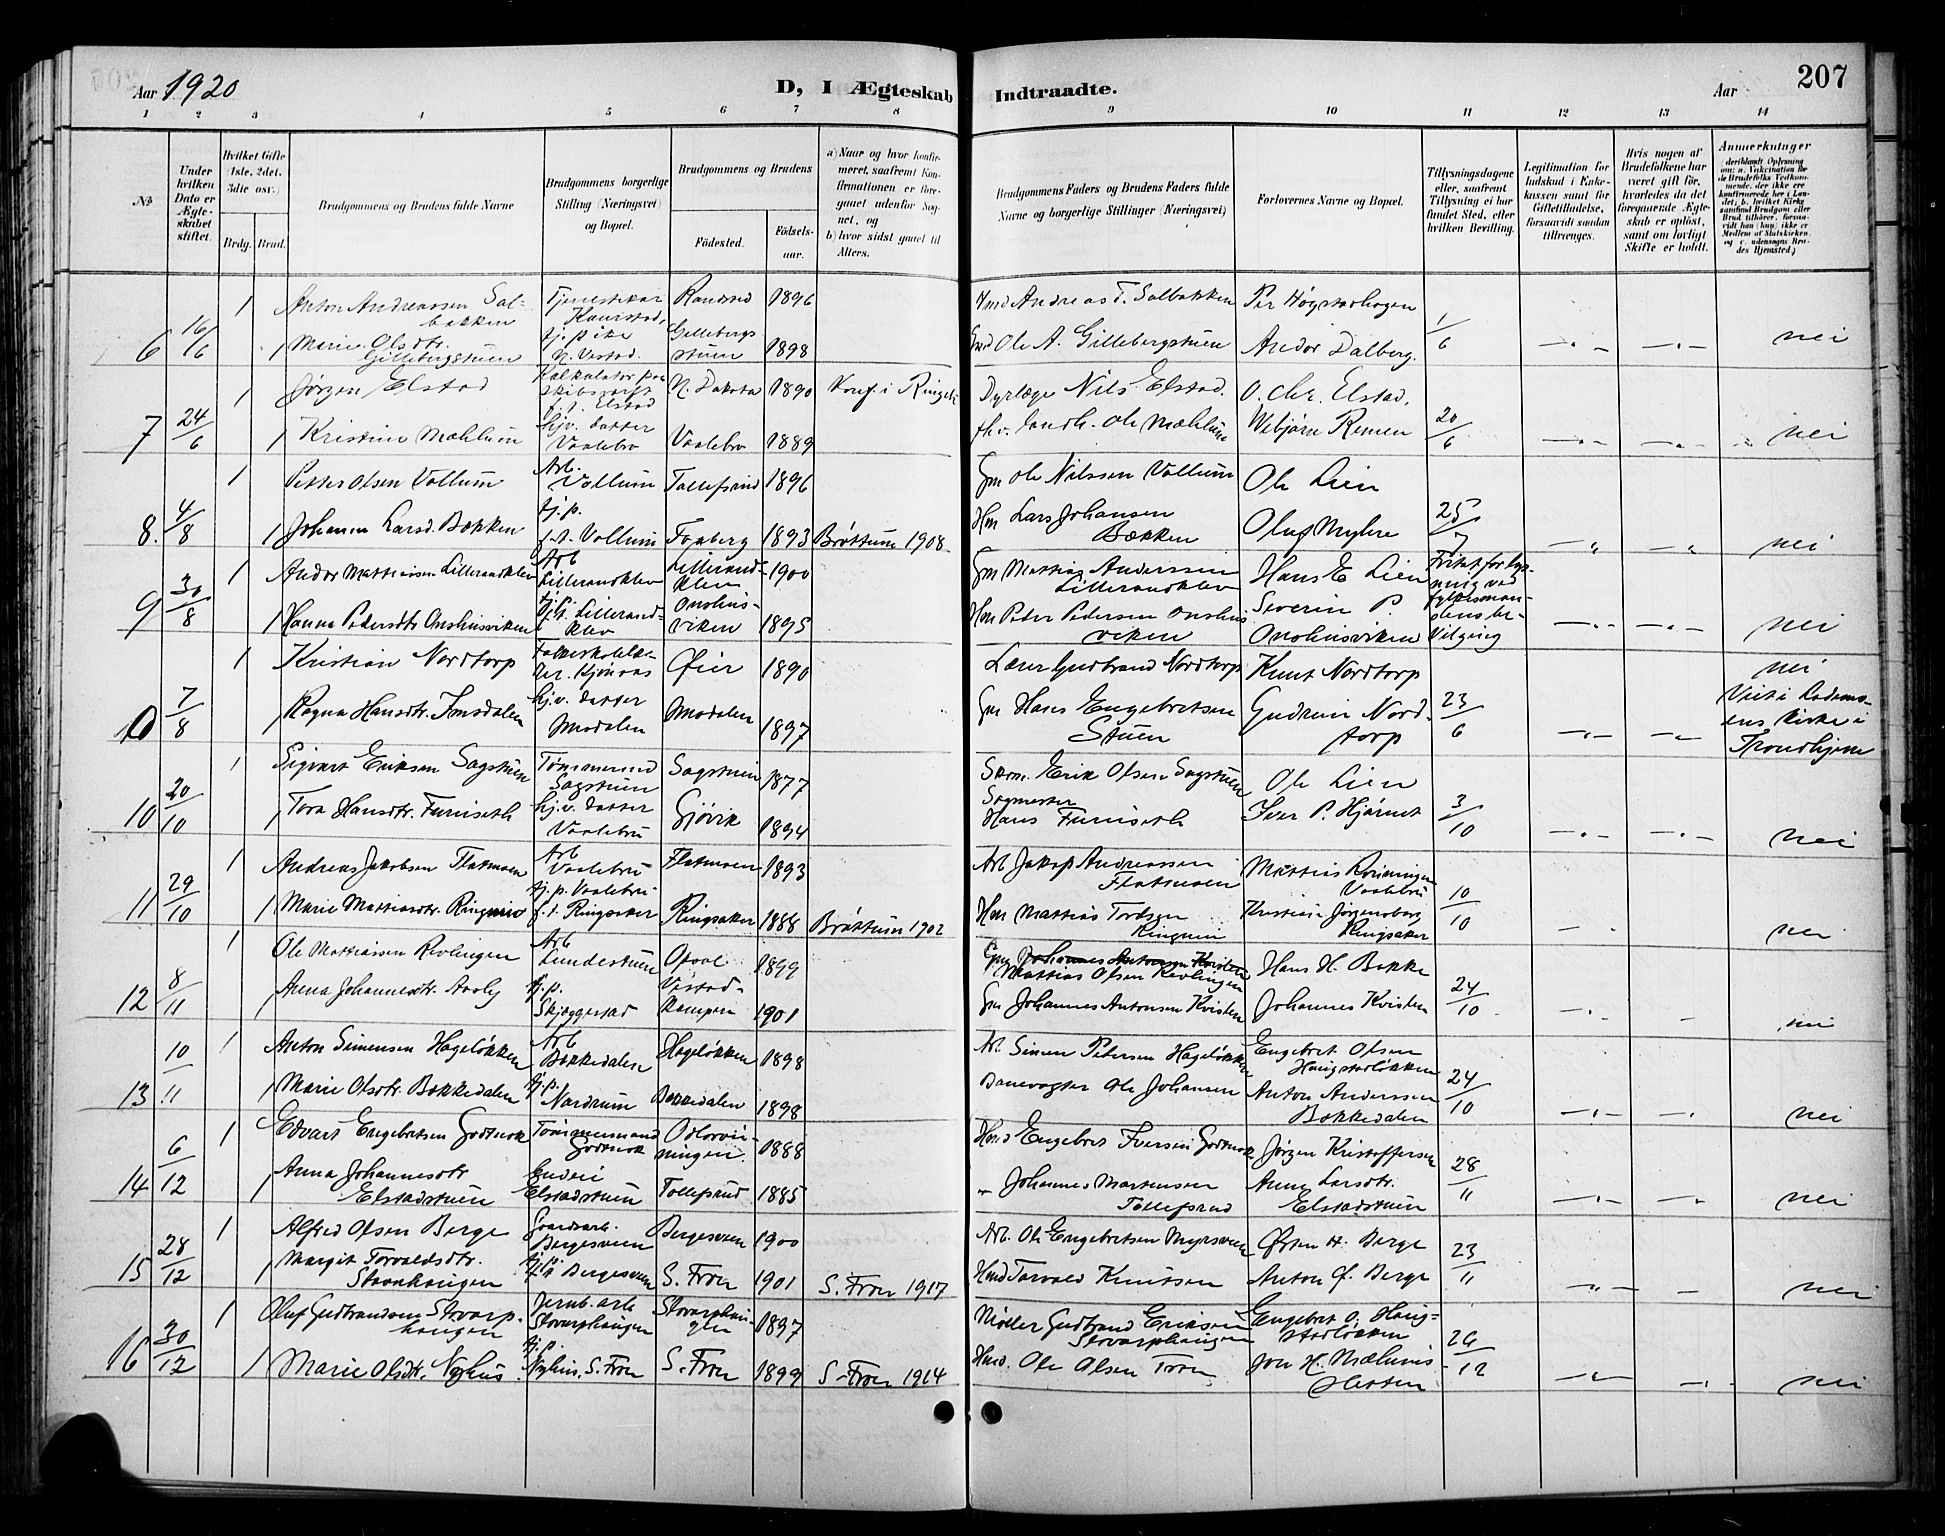 207
Aar 1920 D, I Ægteskab Indtraadte. Aar
1 2 3 4 5 6 7 8 9 10 11 12 13 14
No
Under hvilken Dato er Ægteskabet stiftet.
Hvilket Gifte (1ste, 2det, 3die osv.)
Brdg. Brud.
Brudgommens og Brudens fulde Navne
Brudgommens borgerlige Stilling (Næringsvei) og Bopæl.
Brudgommens og Brudens
Fødested. Fødselsaar.
a) Naar og hvor konfirmeret, saafremt Konfirmationen er foregaaet udenfor Sognet, og
b) hvor sidst gaaet til Alters.
Brudgommens Faders og Brudens Faders fulde Navne og borgerlige Stillinger (Næringsvei)
Forlovernes Navne og Bopæl.
Tillysningsdagene eller, saafremt Tillysning ei har fundet Sted, efter hvilken Bevilling.
Legitimation for Indskud i Enkekassen samt for Giftetilladelse, forsaavidt saadan tiltrænges.
Hvis nogen af Brudefolkene har været gift før, hvorledes da det foregaaende Ægteskab er opløst, samt om lovligt Skifte er holdt.
Anmerkninger
6 16/6 1 Anton Andreassen Salbakken Tjenestekar Kaurstad, Randstad 1896 Andreas T. Salbakken Per Høgstadhagen 1/6
1 Marie Olsdtr. Gillebergstuen tj.pike N. Vestad. Gillebergstuen 1898 Ole A. Gillebergstuen Andor Dalberg. nei
7 24/6 1 Jørgen Elstad Kalkulator paa skibsværft f.t. Elstad N. Dakota 1890 Konf. i Ringeb. Dyrlæge Nils Elstad. O. Chr. Elstad. 20/6
1 Kristine Mæhlum hjv. datter Vaalebro Vaalebro 1889 fhv. landh. Ole Mæhlum Webjørn Remen nei
8. 4/8 1 Petter Olsen Vollum Arb. Vollum Tollefsrud 1896 Gm Ole Nilssen Vollum Ole Lien 25/7
1 Johanna Larsd. Bækken tj.p. f.t. Vollum Faaberg 1893 Brøttum 1908. Hm Lars Johansen Bækken Oluf Myhre nei
9 30/8 1 Andor Mattiassen Lillerandklev Arb Lillerandklev Lillerandklev 1900 Gm Mattias Anderssen Lillerandklev Hans E Lien
1 Hanna Pedersdtr Onshusviken tj.p. Lillerandklev Onshusviken 1895 Hm Peter Pedersen Onshusviken Severin P. Onshusviken nei
10 7/8 1 Kristian Nordtorp Øier 1890 Lærer Gudbrand Nordtorp Knut Nordtorp 23/6 nei
1 Ragna Hansdtr. Imsdalen hjv. datter Musdalen Musdalen 1897 Gm Hans Engebretsen Stuen Gudrun Nordtorp Viet i Lademoens Kirke i Trondhjem
10 20/10 1 Sigvart Eriksen Sagstuen Tømmermd Sagstuen Sagstuen 1877 Erik Olsen Sagstuen Ole Lien 3/10
1 Tora Hansdtr. Furuseth hj.v. datter Vaalebru Gjøvik 1894 Sagmester Hans Furuseth Iver P. Hjørnet nei
11 29/10 1 Andreas Jakobsen Flatmoen Arb Vaalebru Flatmoen 1893 Arb Jakop Andreassen Flatmoen Mattias Rønningen Vaalebru 10/10
1 Marie Mattiasdtr. Ringnin tj.p. Vaalebru f.t. Ringsaker Ringsaker 1888 Brøttum 1902 Hm Mattias Tordsen Ringnin Kristian Jørgensberg Ringsaker nei
12 8/11 1 Ole Mattiassen Revlingen Arb Lundestuen 1899 Gm Johannes Antonsen Kvisten Mattias Olsen Revlingen Hans H. Bakke 24/10
1 Anna Johannesdtr. Aasly tj.p. Skjæggestad Vestadkampen 1901 Gm Johannes Antonsen Kvisten Johannes Kvisten nei
13 10/11 1 Anton Simensen Hageløkken Arb Bækkedalen Hageløkken 1898 Ar. Simen Petersen Hageløkken Engebret Olsen Haugstadløkken 24/10
1 Marie Olsdtr. Bækkedalen tj.p. Nordrum Bækkedalen 1898 Banevogter Ole Johansen Anton Anderssen Bækkedalen nei
14 6/12 1 Edvart Engebretsen Godtnok Tømmermand Godtnok 1888 Hmd Engebret Iversen Godtnok Jørgen Kristoffersen 28/11
1 Anna Johannesdtr. Elstadstuen Enden Elstadstuen Tollefsrud 1885 " Johannes Martensen Tollefsrud Anne Larsdtr. Elstadstuen nei
15 28/12 1 Alfred Olsen Berge Gaardsarb. Bergesveen Bergesveen 1900 Arb. Ole Engebretsen Myrsveen Østen H. Berge 23/11
1 Margit Torvaldsdtr. Stavnhaugen tj.p. Bergesveen S. Fron 1901 S. Fron 1917 Hmd Torvald Knutsen Anton O. Berge nei
16 30/12 1 Oluf Gudbrandsen Stavarphaugen Jernb. arb Stovarphaugen Stovarphaugen 1897 Møller Gudbrand Eriksen Stovarphaugen Engebret O. Haugstadløkken 26/12
1 Marie Olsdtr. Nyhus tj.p. Nyhus, S. Fron S. Fron 1899 S. Fron 1914 Hmd. Ole Olsen Troen Jon H. Mælums nei